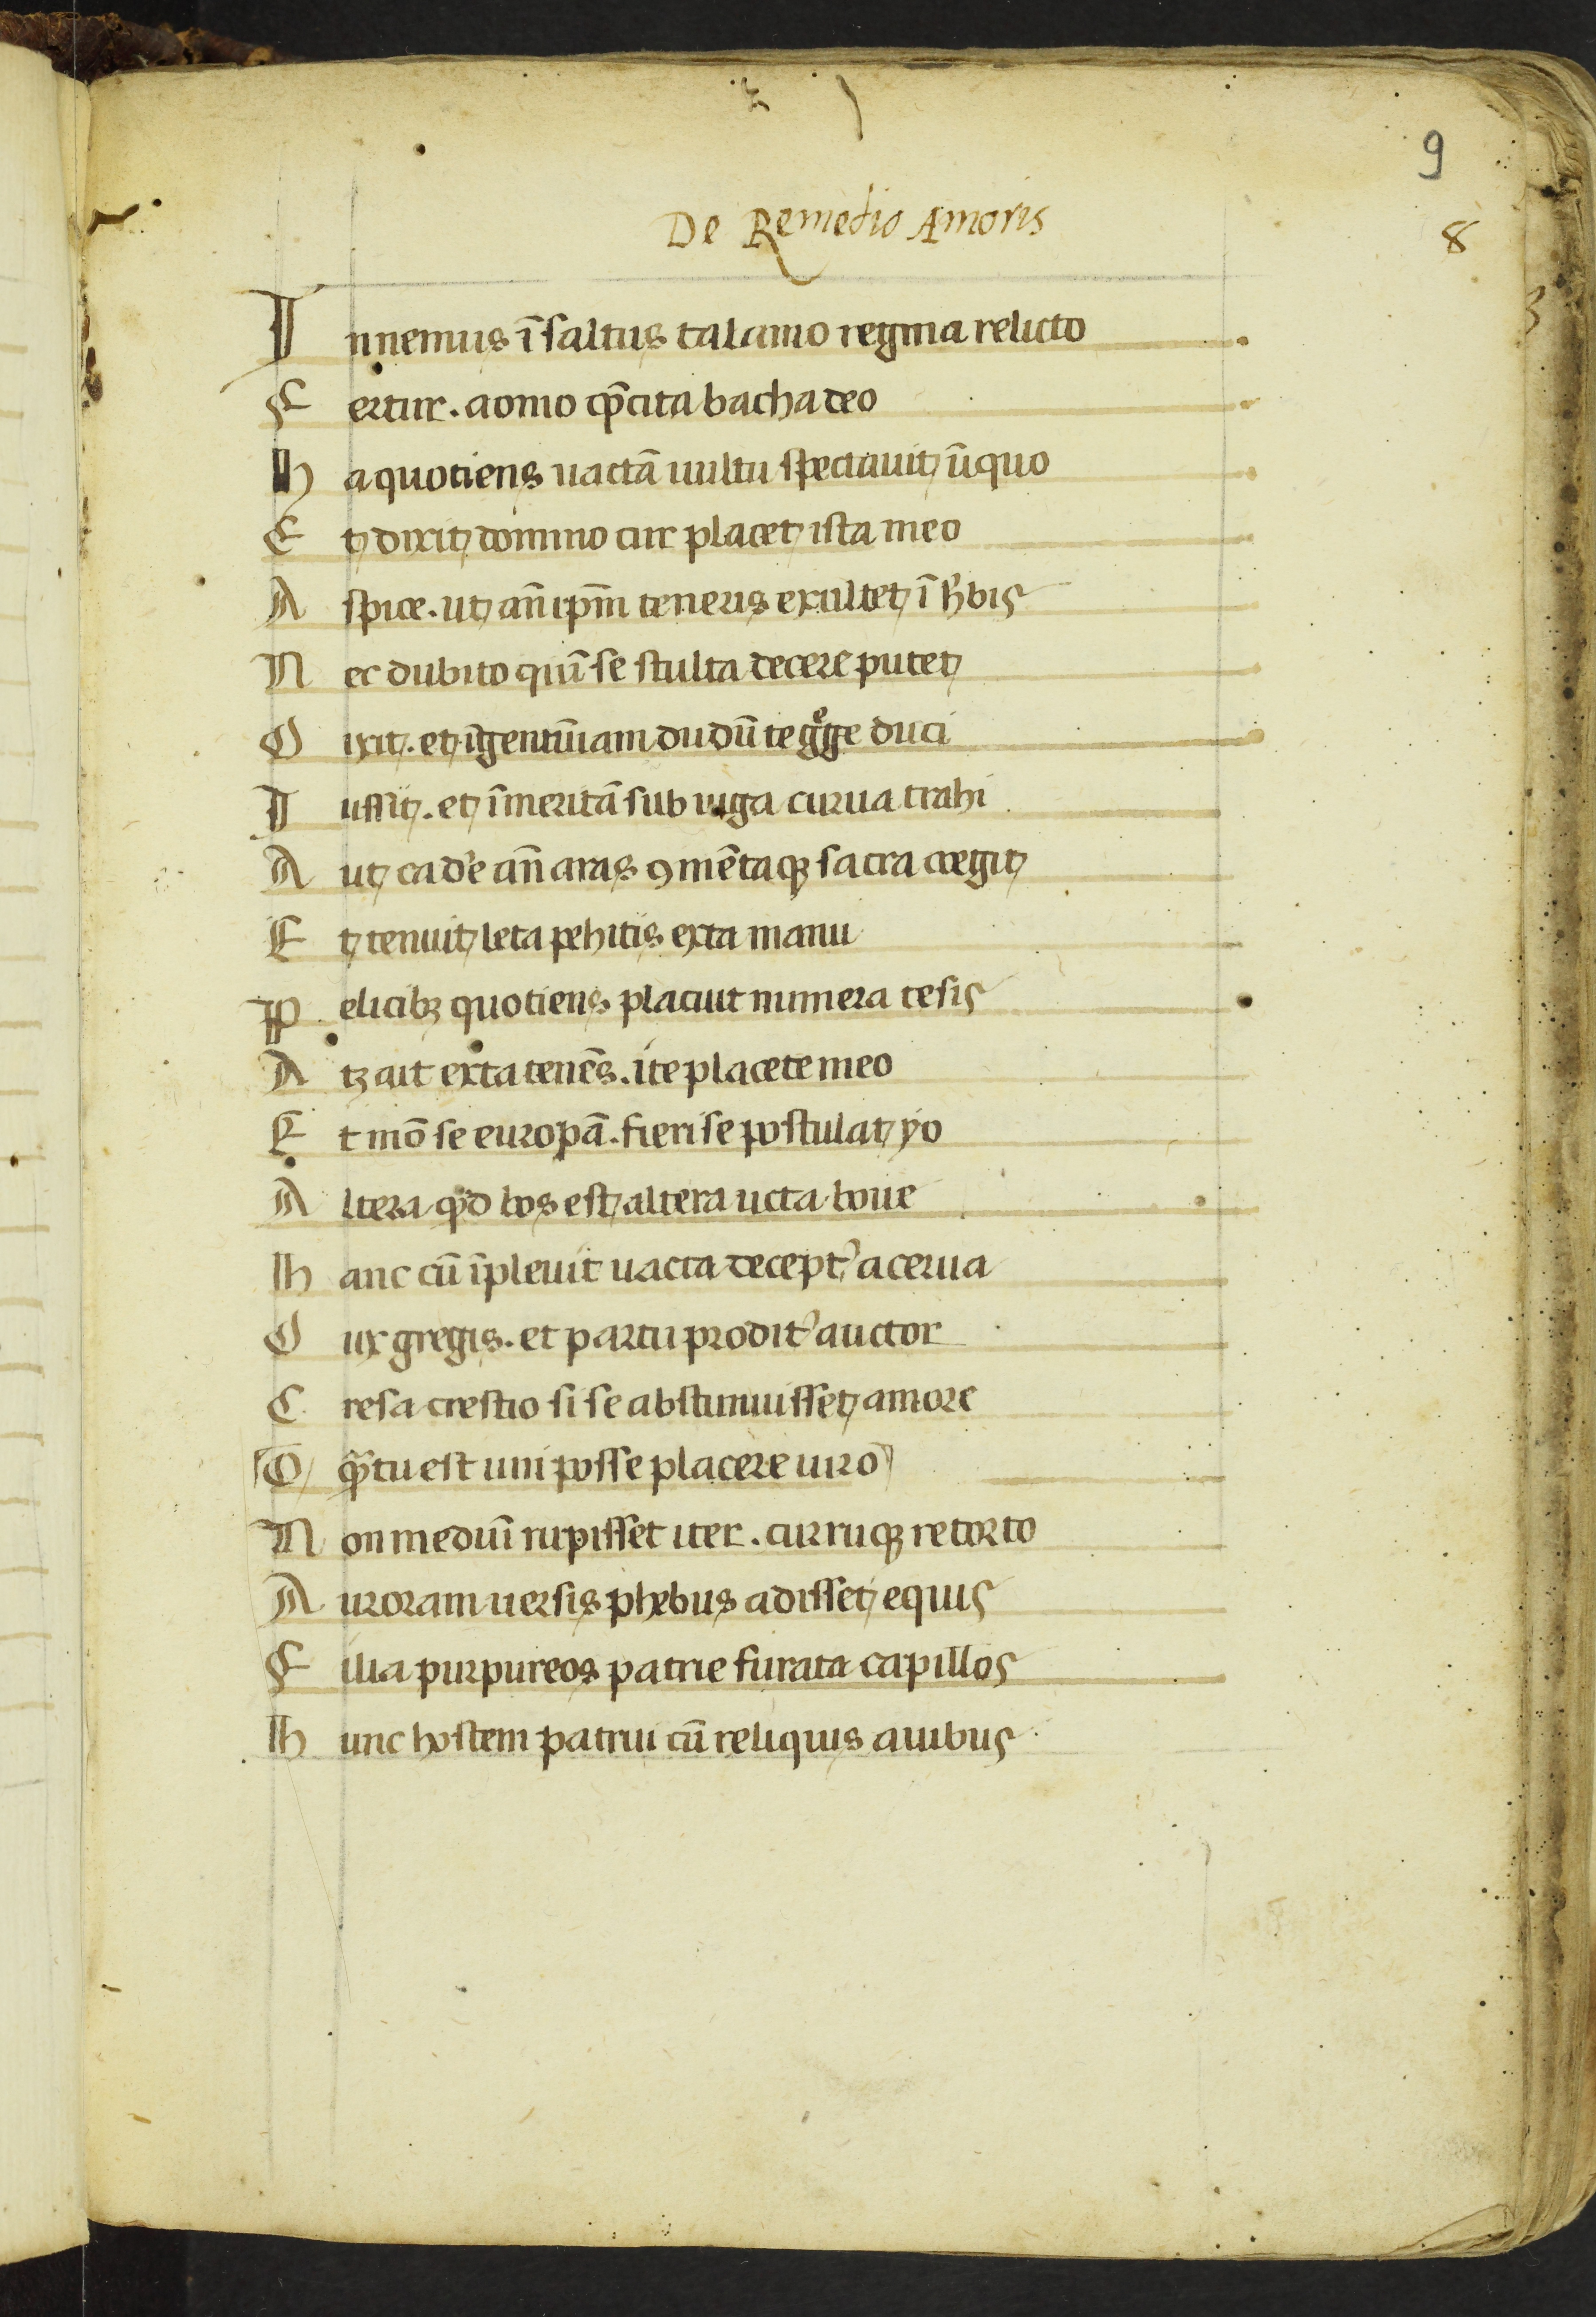 9
De Remedio Amoris
8
In nemus ī saltus talamo regina relicto
Fertur. aonio ꝯcita bacha deo
Ha quotiens uaccā uultu spectauit iniquo
Et dixit domino cur placet ista meo
Aspice. ut añ ipm̄ teneris exultet ī hbis
Nec dubito quī se stulta decere putet
Dixit. et īgenti iam dudū de gͤge duci
Iussit. et īmeritā sub iuga curua trahi
Aut cade añ aras ꝯmētaqꝫ sacra coegit
Et tenuit leta pelicis exta manu
Pelicibꝫ quotiens placuit numera cesis
Atqꝫ ait exta tenēs. ite placete meo
Et mō se europā. fieri se postulat yo
Altera qd bos est altera uicta boue
Hanc cū īpleuit uacca decept' acerua
Dux gregis. et partu prodit' auctor
Cresa tiestio si se abstinuisset amore
O qͣtu est uni posse placere uiro
Non mediū rupisset iter. curruqꝫ retorto
Auroram uersis phebus adisset equis
Filia purpureos patrie furata capillos
Hunc hostem patrui cū reliquis auibus